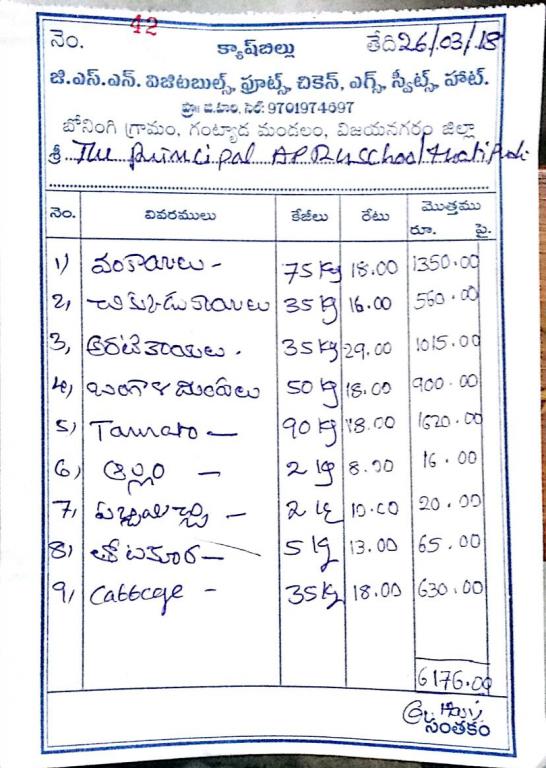 నెం. 42 క్యాష్‌బిల్లు తేది 26/03/18
జి.ఎస్.ఎన్. విజిటబుల్స్, ఫ్రూట్స్, చికెన్, ఎగ్స్, స్వీట్స్, హాట్.
ప్రొ॥ జి.హరి, సెల్: 9701974697
బోనింగి గ్రామం, గంట్యాడ మండలం, విజయనగరం జిల్లా
శ్రీ The Principal APRuschool
నెం. వివరములు కేజీలు రేటు మొత్తము
రూ. పై.
1) వంకాయలు - 75 Kg 18.00 1350.00
2, చిక్కుడుకాయలు 35 Kg 16.00 560.00
3, అరటికాయలు . 35 Kg 29.00 1015.00
4, బంగాళదుంపలు 50 Kg 18.00 900.00
5) Tamato - 90 Kg 18.00 1620.00
6) అల్లం - 2 Kg 8.00 16.00
7, పచ్చిమిర్చి - 2 Kg 10.00 20.00
8) తోటకూర - 5 Kg 13.00 65.00
9, Cabbage - 35 Kg 18.00 630.00
6176.00
సంతకం